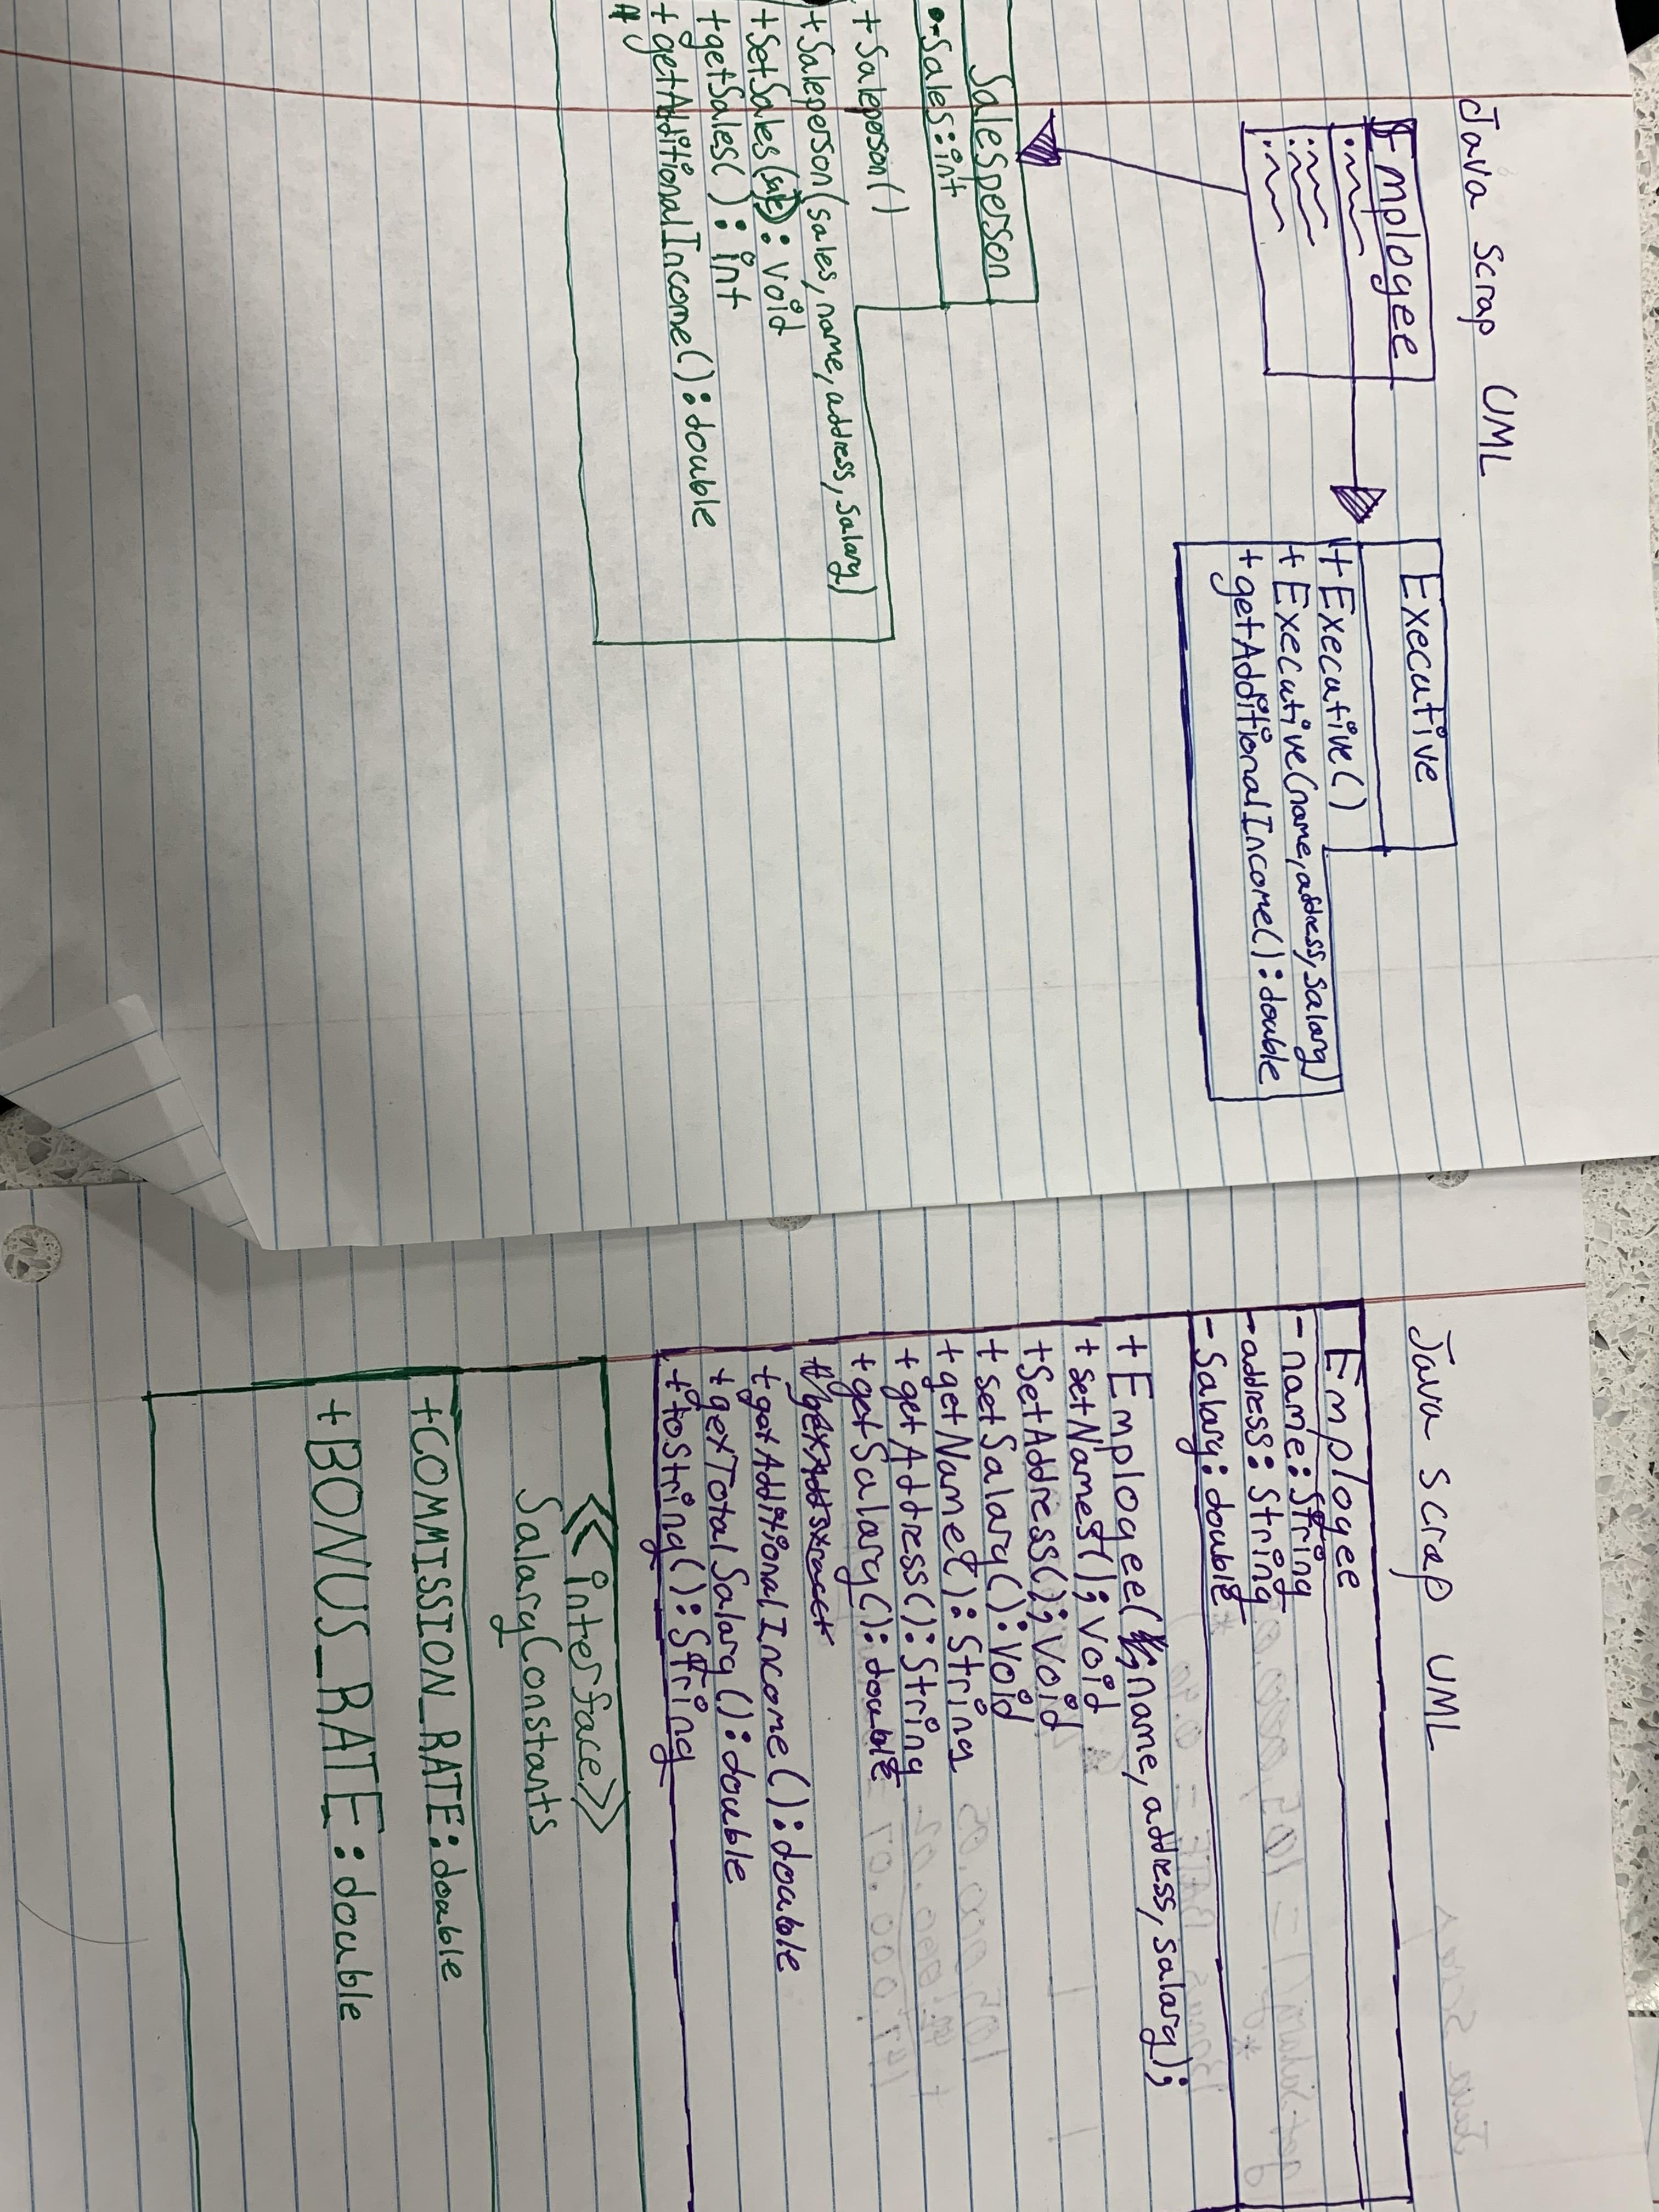 Java Scrap UML
Employee
Executive
+Executive()
+Executive(name,address,salary)
+getAdditionalIncome():double
Salesperson
-Sales:int
+Saleperson()
+Saleperson(sales,name,address,salary)
+SetSales(sale):void
+getSales():int
+getAdditionalIncome():double
#
Java Scrap UML
Employee
-name:String
-address:String
-Salary:double
+Employee(name,address,salary);
+setName();Void
+SetAddress();Void
+setSalary():Void
+getName():String
+getAddress():String
+getSalary():double
+getAdditionalIncome():double
+getTotalSalary():double
+toString():String
<<interface>>
SalaryConstants
+COMMISSION_RATE:double
+BONUS_RATE:double